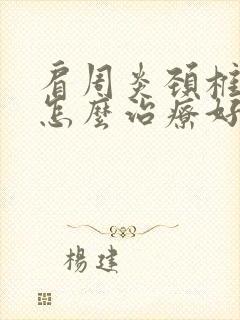 肩周炎頸椎
怎麼治療好
楊建